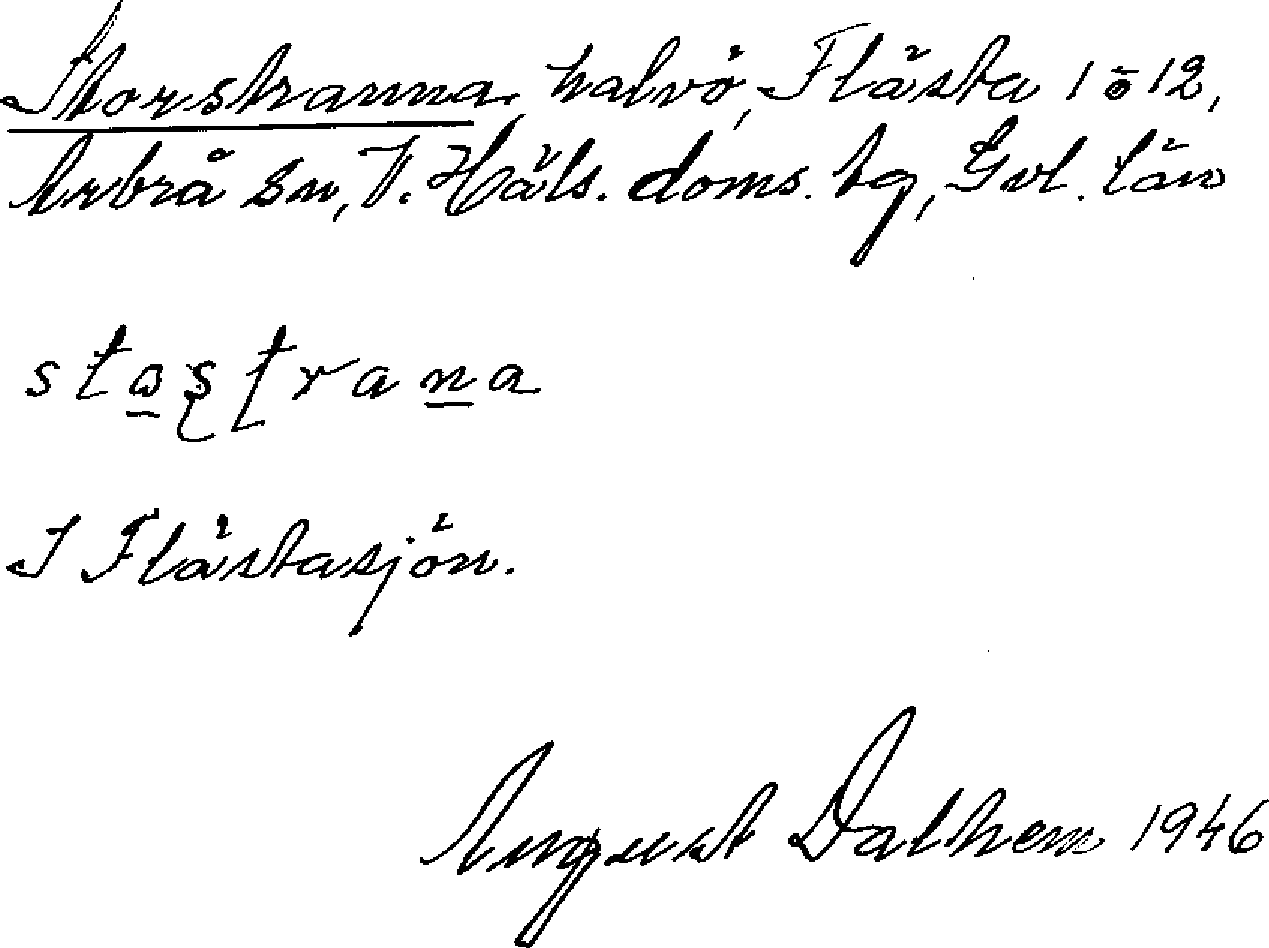 Storstranna, halvö, Flästa 1 o 12,
Arbrå sn, V. Häls. doms. tg, Gvl. län
stosṭrana
I Flästasjön.
August Dalhem 1946